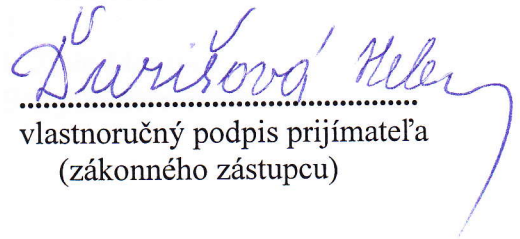 Ďurišová Helen
vlastnoručný podpis prijímateľa
(zákonného zástupcu)